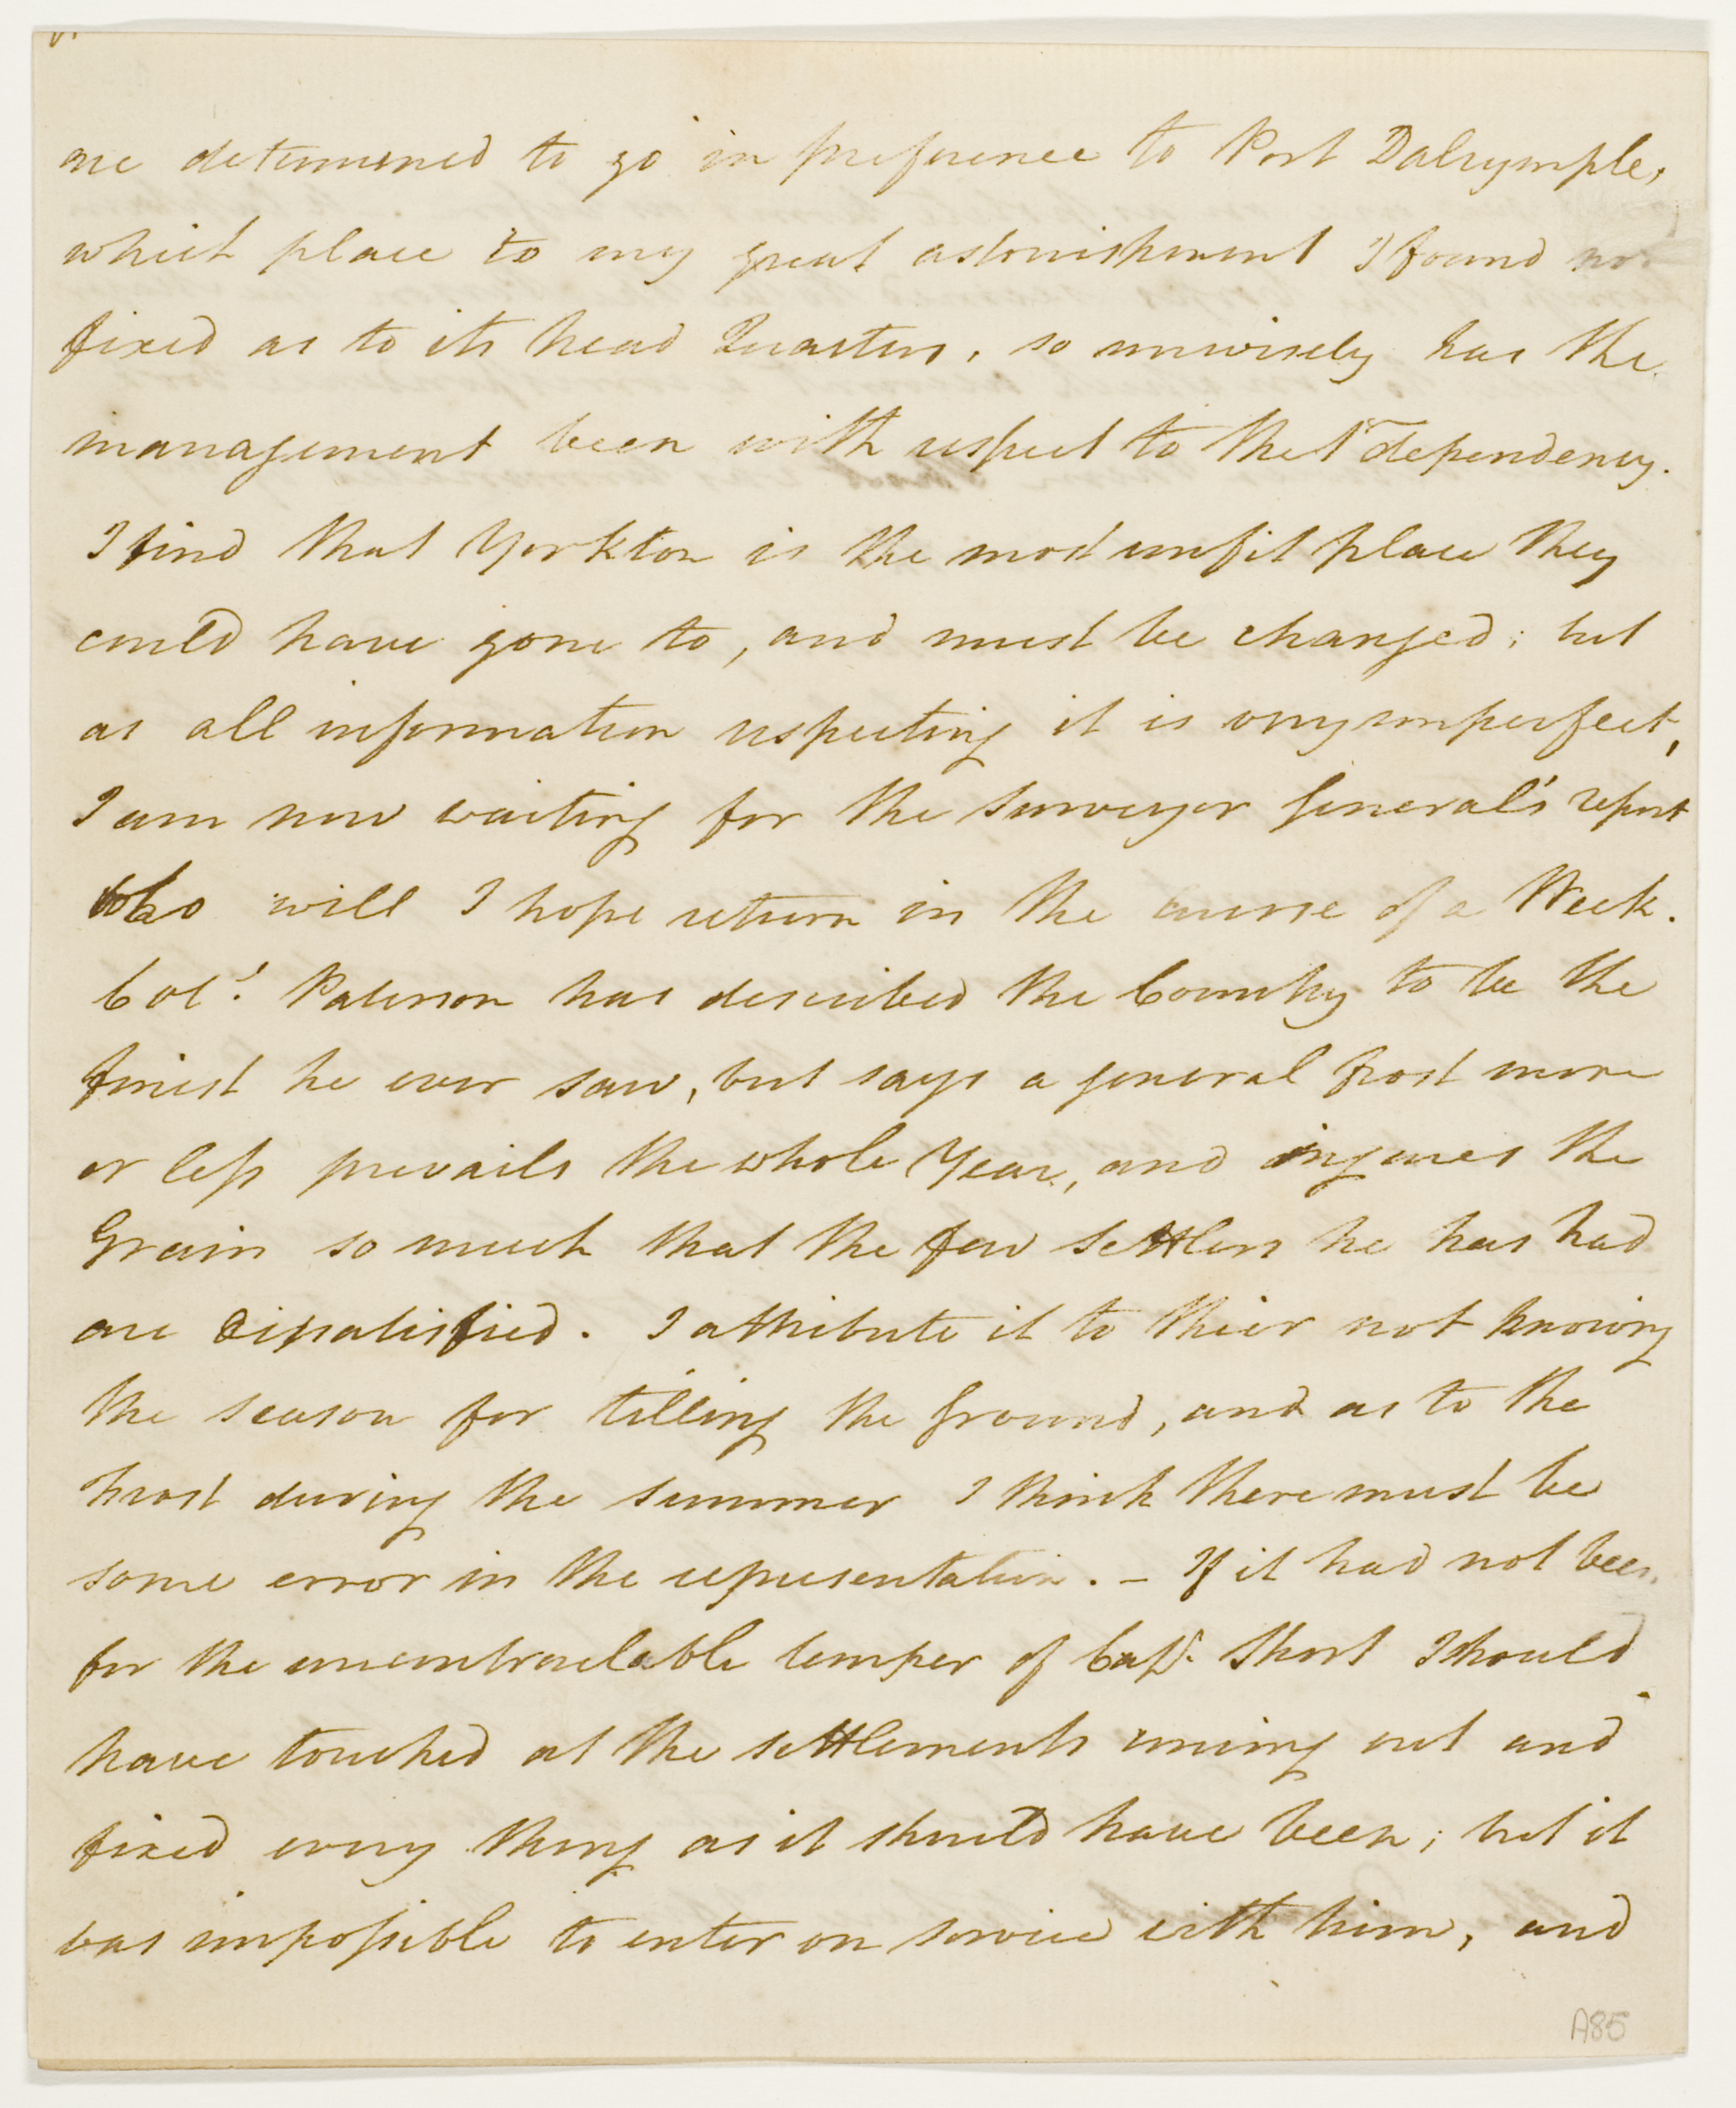 are determined to go in preference to Port Dalrymple,
which place to my great astonishment I found not
fixed as to its head Quarters, so unwisely has the
management been with respect to that dependency.
I find that Yorkton is the most unfit place they
could have gone to, and must be changed; but
as all information respecting it is very imperfect,
I am now waiting for the Surveyor General's report
who will I hope return in the course of a Week.
Col.l Paterson has described the Country to be the
finest he ever saw, but says a general frost more
or less prevails the whole Year, and injures the
Grain so much that the few settlers he has had
are dissatisfied. I attribute it to thier not knowing
the season for tilling the Ground, and as to the
frost during the summer I think there must be
some error in the representation. – If it had not been
for the uncontroulable temper of Capt. Short I should
have touched at the settlements coming out and
fixed every thing as it should have been; but it
was impossible to enter on service with him, and
A85